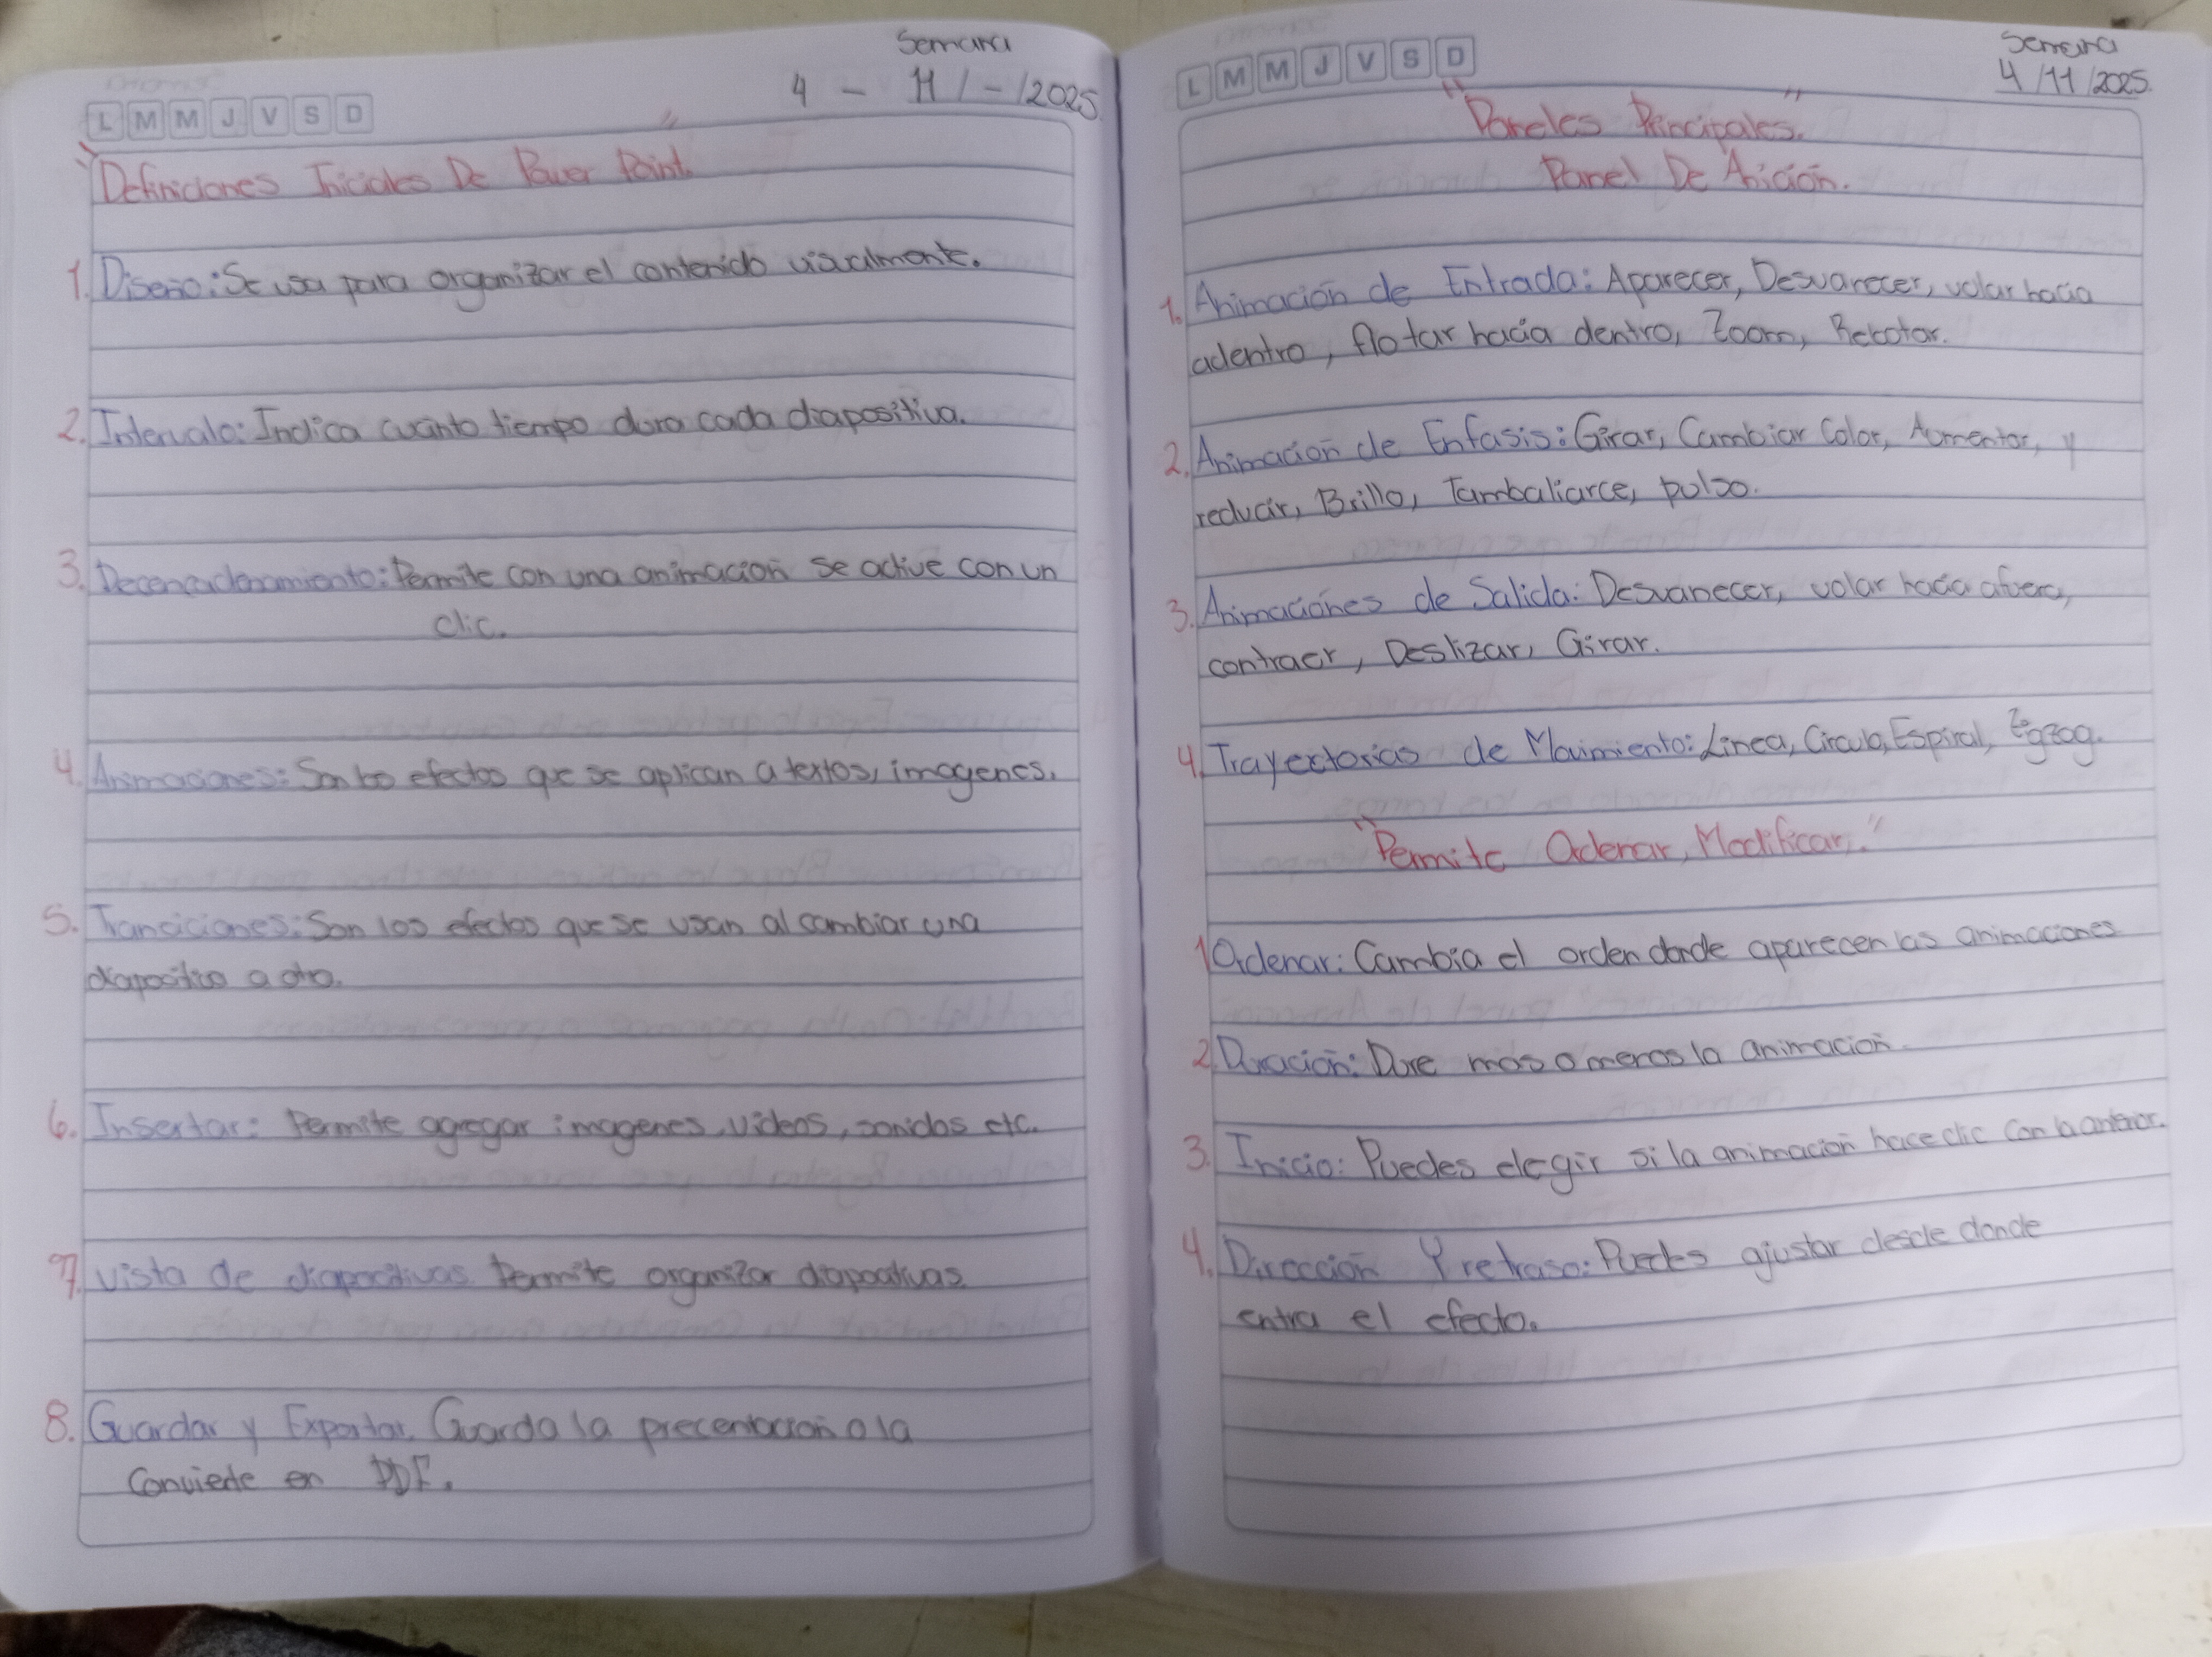 Semana
4 - 11 / - / 2025
L M M J V S D
"Definiciones Iniciales De Power Point."
1. Diseño: Se usa para organizar el contenido visualmente.
2. Intervalo: Indica cuanto tiempo dura cada diapositiva.
3. Decencadenamiento: Permite con una animación se active con un
clic.
4. Animaciones: Son los efectos que se aplican a textos, imagenes.
5. Tranciciones: Son los efectos que se usan al cambiar una
diapositiva a otra.
6. Insertar: Permite agregar imagenes, videos, sonidos etc.
7. Vista de diapositivas Permite organizar diapositivas
8. Guardar y Exportar. Guarda la precentación o la
Convierte en PDF.
Semana
4 / 11 / 2025
L M M J V S D
"Paneles Principales."
Panel De Anición.
1. Animación de Entrada: Aparecer, Desvanecer, volar hacia
adentro, flotar hacia dentro, Zoom, Rebotar.
2. Animación de Enfasis: Girar, Cambiar Color, Aumentar, y
reducir, Brillo, Tambaliarce, pulso.
3. Animaciónes de Salida: Desvanecer, volar hacia afuera,
contraer, Deslizar, Girar.
4. Trayectorias de Movimiento: Linea, Circulo, Espiral, Zigzag.
"Permite Ordenar, Modificar."
1 Ordenar: Cambia el orden donde aparecen las animaciones
2. Duración: Dure mas o menos la animación.
3. Inicio: Puedes elegir si la animación hace clic con la anterior.
4. Dirección Y retraso: Puedes ajustar desde donde
entra el efecto.